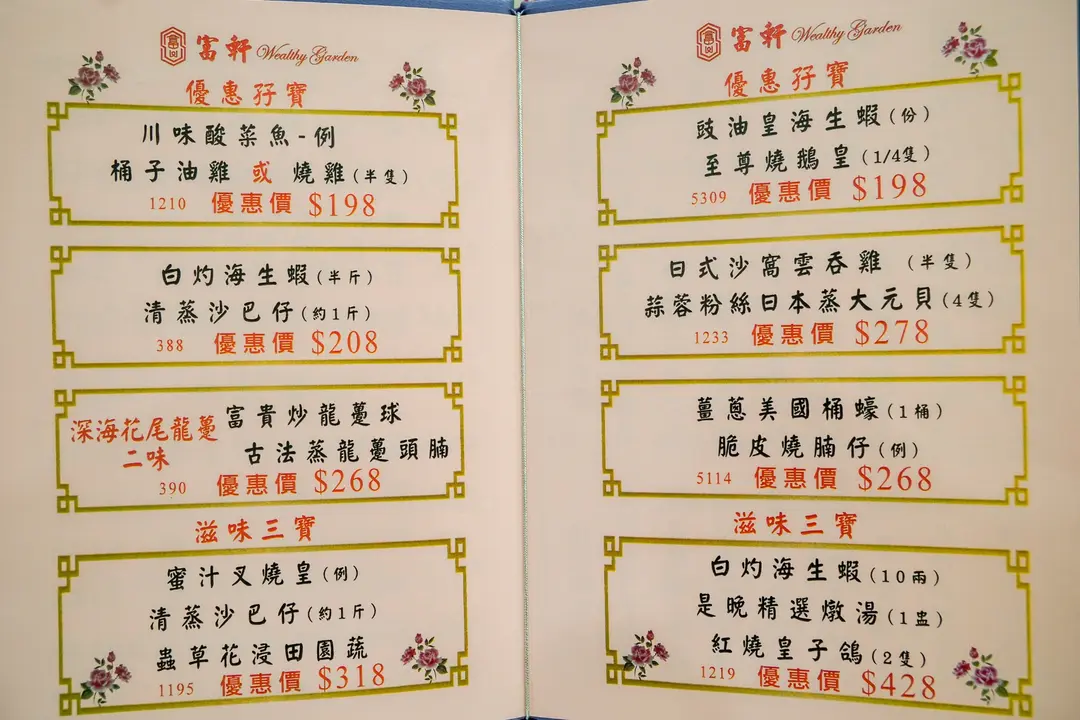 富軒 Wealthy Garden
優惠孖寶
川味酸菜魚-例
桶子油雞 或 燒雞(半隻)
1210 優惠價 $198
白灼海生蝦(半斤)
清蒸沙巴仔(約1斤)
388 優惠價 $208
深海花尾龍躉
二味
富貴炒龍躉球
古法蒸龍躉頭腩
390 優惠價 $268
滋味三寶
蜜汁叉燒皇(例)
清蒸沙巴仔(約1斤)
蟲草花浸田園蔬
1195 優惠價 $318
富軒 Wealthy Garden
優惠孖寶
豉油皇海生蝦(份)
至尊燒鵝皇(1/4隻)
5309 優惠價 $198
日式沙窩雲吞雞 (半隻)
蒜蓉粉絲日本蒸大元貝(4隻)
1233 優惠價 $278
薑蔥美國桶蠔(1桶)
脆皮燒腩仔(例)
5114 優惠價 $268
滋味三寶
白灼海生蝦(10兩)
是晚精選燉湯(1盅)
紅燒皇子鴿(2隻)
1219 優惠價 $428